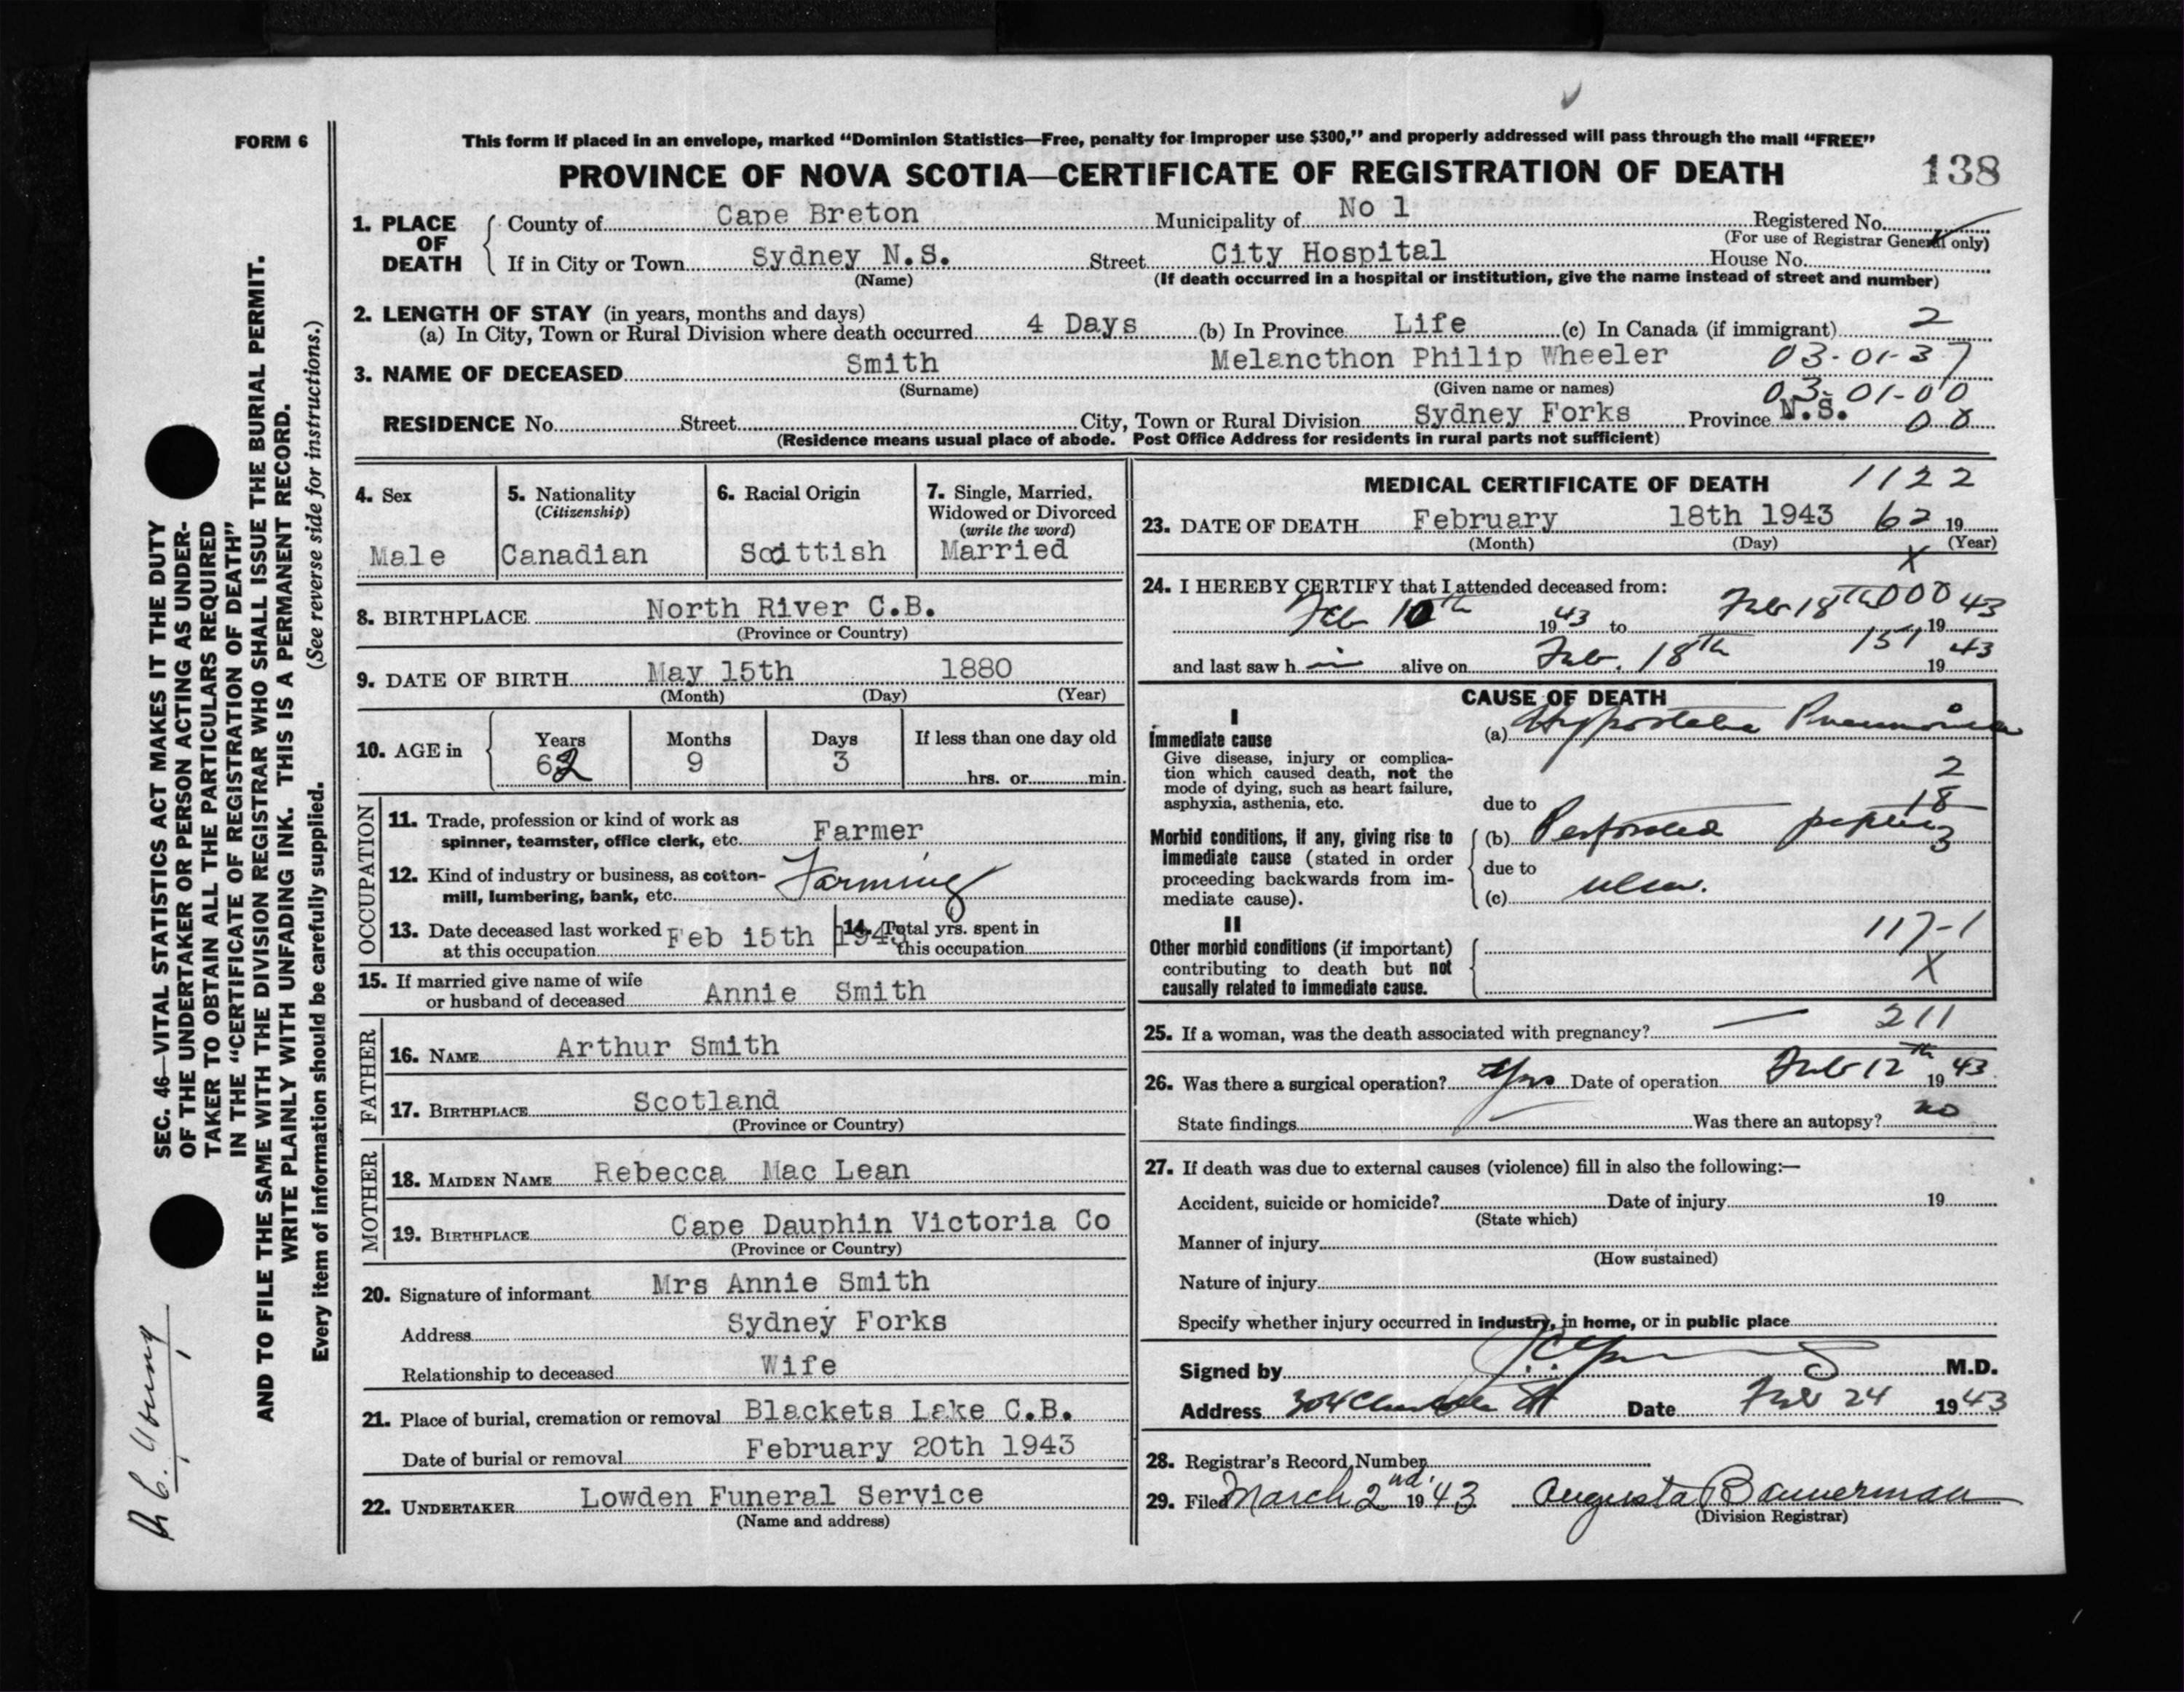 FORM 6
This form if placed in an envelope, marked “Dominion Statistics—Free, penalty for improper use $300,” and properly addressed will pass through the mail “FREE”
PROVINCE OF NOVA SCOTIA—CERTIFICATE OF REGISTRATION OF DEATH 138
1. PLACE OF DEATH
County of Cape Breton Municipality of No 1 Registered No.
(For use of Registrar General only)
If in City or Town Sydney N.S. Street City Hospital House No.
(Name) (If death occurred in a hospital or institution, give the name instead of street and number)
2. LENGTH OF STAY (in years, months and days)
(a) In City, Town or Rural Division where death occurred 4 Days (b) In Province Life (c) In Canada (if immigrant) 2
3. NAME OF DECEASED Smith Melancthon Philip Wheeler 03-01-37
(Surname) (Given name or names) 03-01-00
RESIDENCE No. Street City, Town or Rural Division Sydney Forks Province N.S. 00
(Residence means usual place of abode. Post Office Address for residents in rural parts not sufficient)
4. Sex
Male
5. Nationality
(Citizenship)
Canadian
6. Racial Origin
Scottish
7. Single, Married,
Widowed or Divorced
(write the word)
Married
8. BIRTHPLACE North River C.B.
(Province or Country)
9. DATE OF BIRTH May 15th 1880
(Month) (Day) (Year)
10. AGE in Years Months Days If less than one day old
62 9 3 hrs. or min.
OCCUPATION
11. Trade, profession or kind of work as
spinner, teamster, office clerk, etc. Farmer
12. Kind of industry or business, as cotton-
mill, lumbering, bank, etc. Farming
13. Date deceased last worked
at this occupation Feb 15th 1943
14. Total yrs. spent in
this occupation
15. If married give name of wife
or husband of deceased Annie Smith
FATHER
16. NAME Arthur Smith
17. BIRTHPLACE Scotland
(Province or Country)
MOTHER
18. MAIDEN NAME Rebecca Mac Lean
19. BIRTHPLACE Cape Dauphin Victoria Co
(Province or Country)
20. Signature of informant Mrs Annie Smith
Address Sydney Forks
Relationship to deceased Wife
21. Place of burial, cremation or removal Blackets Lake C.B.
Date of burial or removal February 20th 1943
22. UNDERTAKER Lowden Funeral Service
(Name and address)
MEDICAL CERTIFICATE OF DEATH 1122
23. DATE OF DEATH February 18th 1943 62 19
(Month) (Day) (Year)
X
24. I HEREBY CERTIFY that I attended deceased from:
Feb 10th 1943 to Feb 18th 000 1943
and last saw h im alive on Feb. 18th 151 1943
CAUSE OF DEATH
I
Immediate cause
Give disease, injury or complica-
tion which caused death, not the
mode of dying, such as heart failure,
asphyxia, asthenia, etc.
(a) Hypostatic Pneumonia
2
due to 18
Morbid conditions, if any, giving rise to
immediate cause (stated in order
proceeding backwards from im-
mediate cause).
(b) Perforated peptic 3
due to
(c) ulcer.
II
Other morbid conditions (if important)
contributing to death but not
causally related to immediate cause.
117-1
X
25. If a woman, was the death associated with pregnancy? — 211
26. Was there a surgical operation? Yes Date of operation Feb 12th 1943
State findings Was there an autopsy? no
27. If death was due to external causes (violence) fill in also the following:—
Accident, suicide or homicide? Date of injury 19
(State which)
Manner of injury
(How sustained)
Nature of injury
Specify whether injury occurred in industry, in home, or in public place
Signed by M.D.
Address 304 Charlotte St Date Feb 24 1943
28. Registrar's Record Number
29. Filed March 2nd. 1943 Augusta Bannerman
(Division Registrar)
SEC. 46—VITAL STATISTICS ACT MAKES IT THE DUTY
OF THE UNDERTAKER OR PERSON ACTING AS UNDER-
TAKER TO OBTAIN ALL THE PARTICULARS REQUIRED
IN THE “CERTIFICATE OF REGISTRATION OF DEATH”
AND TO FILE THE SAME WITH THE DIVISION REGISTRAR WHO SHALL ISSUE THE BURIAL PERMIT.
WRITE PLAINLY WITH UNFADING INK. THIS IS A PERMANENT RECORD.
Every item of information should be carefully supplied. (See reverse side for instructions.)
Young